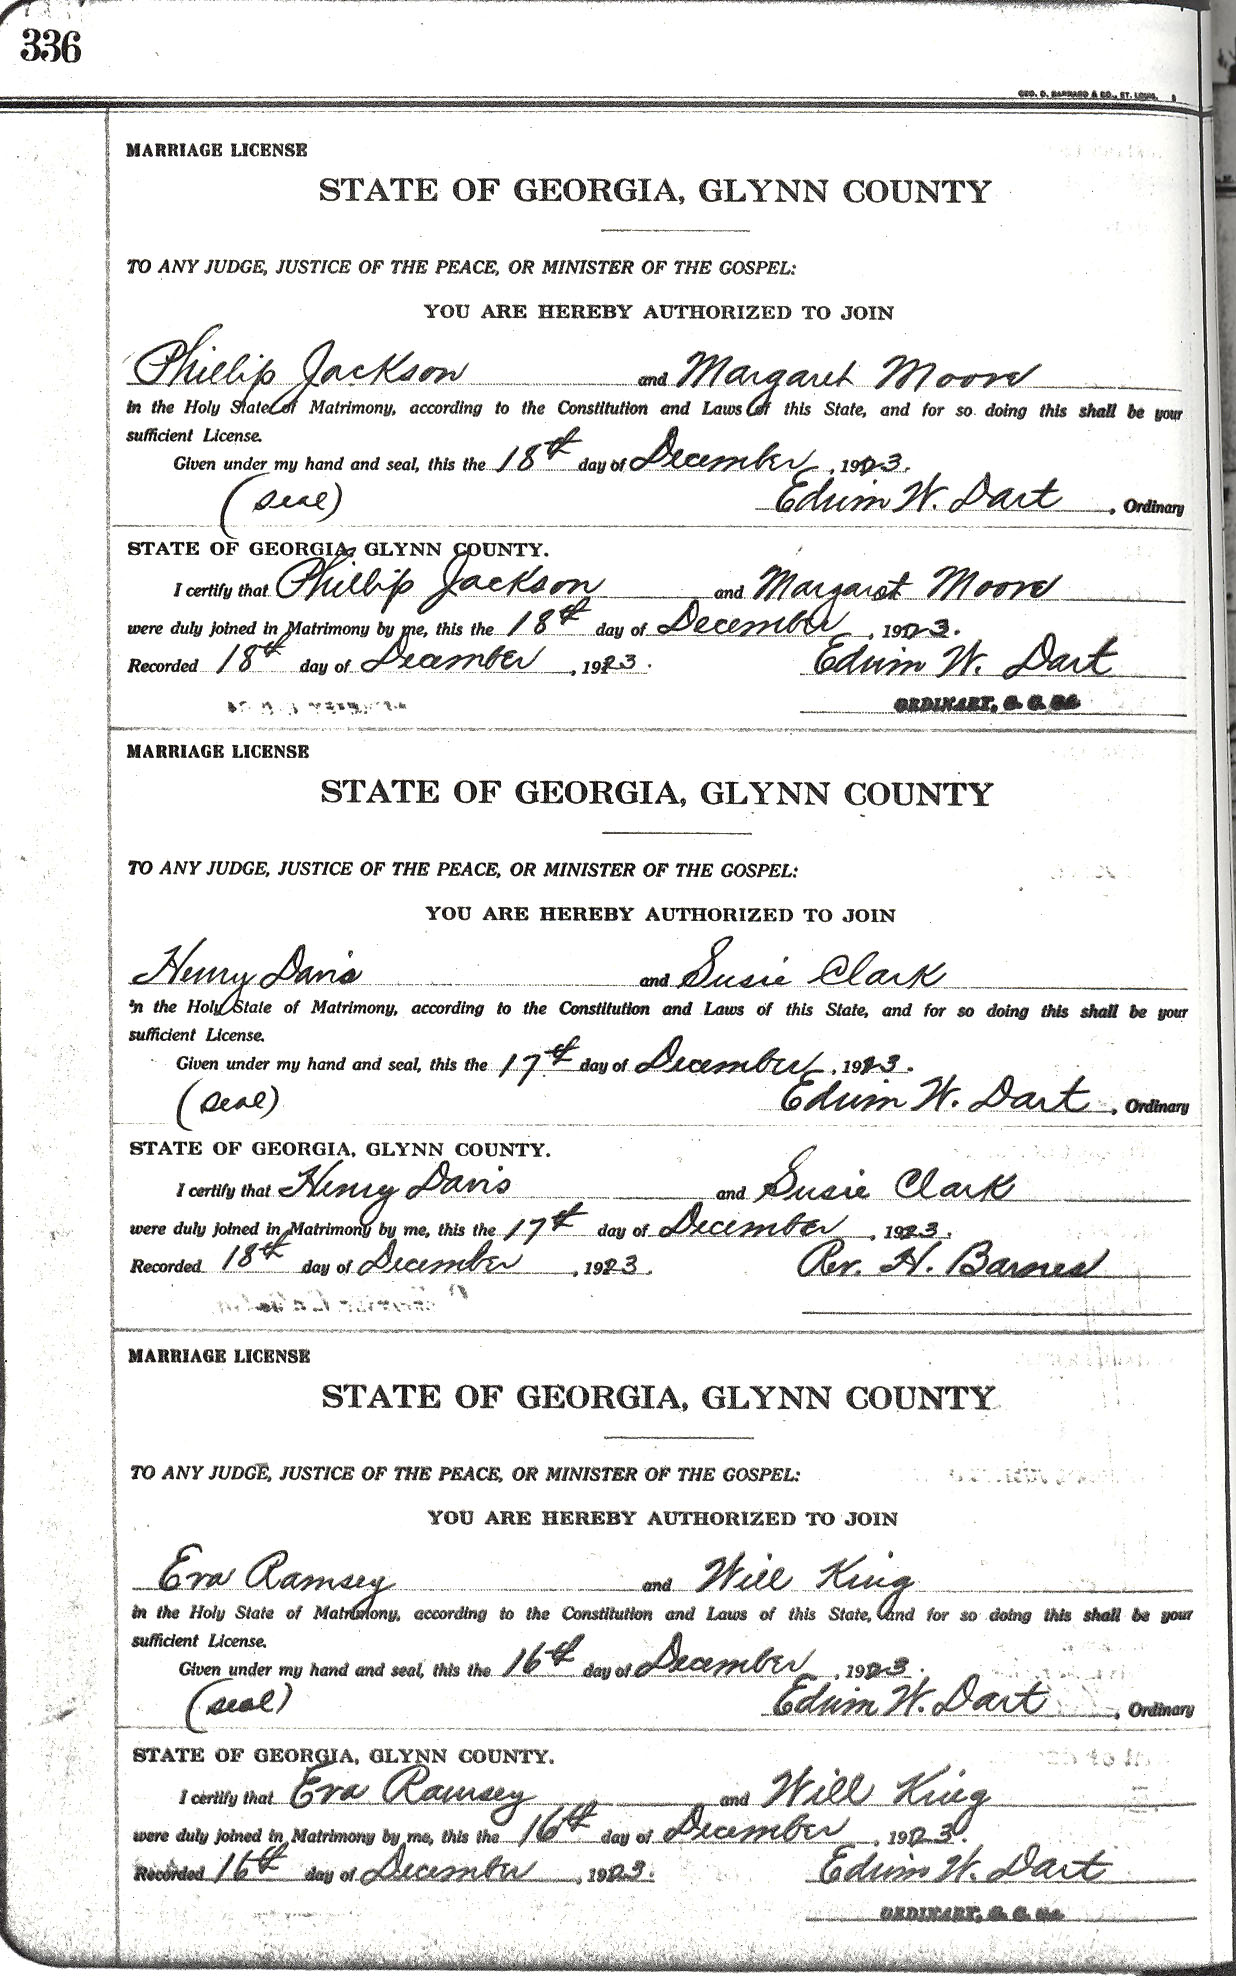 336
GEO. D. BARNARD & CO., ST. LOUIS.
MARRIAGE LICENSE
STATE OF GEORGIA, GLYNN COUNTY
TO ANY JUDGE, JUSTICE OF THE PEACE, OR MINISTER OF THE GOSPEL:
YOU ARE HEREBY AUTHORIZED TO JOIN
Phillip Jackson and Margaret Moore
in the Holy State of Matrimony, according to the Constitution and Laws of this State, and for so doing this shall be your
sufficient License.
Given under my hand and seal, this the 18th day of December, 1923.
(seal) Edwin W. Dart, Ordinary
STATE OF GEORGIA, GLYNN COUNTY.
I certify that Phillip Jackson and Margaret Moore
were duly joined in Matrimony by me, this the 18th day of December, 1923.
Recorded 18th day of December, 1923. Edwin W. Dart
ORDINARY, G. C. GA.
MARRIAGE LICENSE
STATE OF GEORGIA, GLYNN COUNTY
TO ANY JUDGE, JUSTICE OF THE PEACE, OR MINISTER OF THE GOSPEL:
YOU ARE HEREBY AUTHORIZED TO JOIN
Henry Davis and Susie Clark
in the Holy State of Matrimony, according to the Constitution and Laws of this State, and for so doing this shall be your
sufficient License.
Given under my hand and seal, this the 17th day of December, 1923.
(seal) Edwin W. Dart, Ordinary
STATE OF GEORGIA, GLYNN COUNTY.
I certify that Henry Davis and Susie Clark
were duly joined in Matrimony by me, this the 17th day of December, 1923.
Recorded 18th day of December, 1923. Rev. H. Barnes
MARRIAGE LICENSE
STATE OF GEORGIA, GLYNN COUNTY
TO ANY JUDGE, JUSTICE OF THE PEACE, OR MINISTER OF THE GOSPEL:
YOU ARE HEREBY AUTHORIZED TO JOIN
Eva Ramsey and Will King
in the Holy State of Matrimony, according to the Constitution and Laws of this State, and for so doing this shall be your
sufficient License.
Given under my hand and seal, this the 16th day of December, 1923.
(seal) Edwin W. Dart, Ordinary
STATE OF GEORGIA, GLYNN COUNTY.
I certify that Eva Ramsey and Will King
were duly joined in Matrimony by me, this the 16th day of December, 1923.
Recorded 16th day of December, 1923. Edwin W. Dart
ORDINARY, G. C. GA.